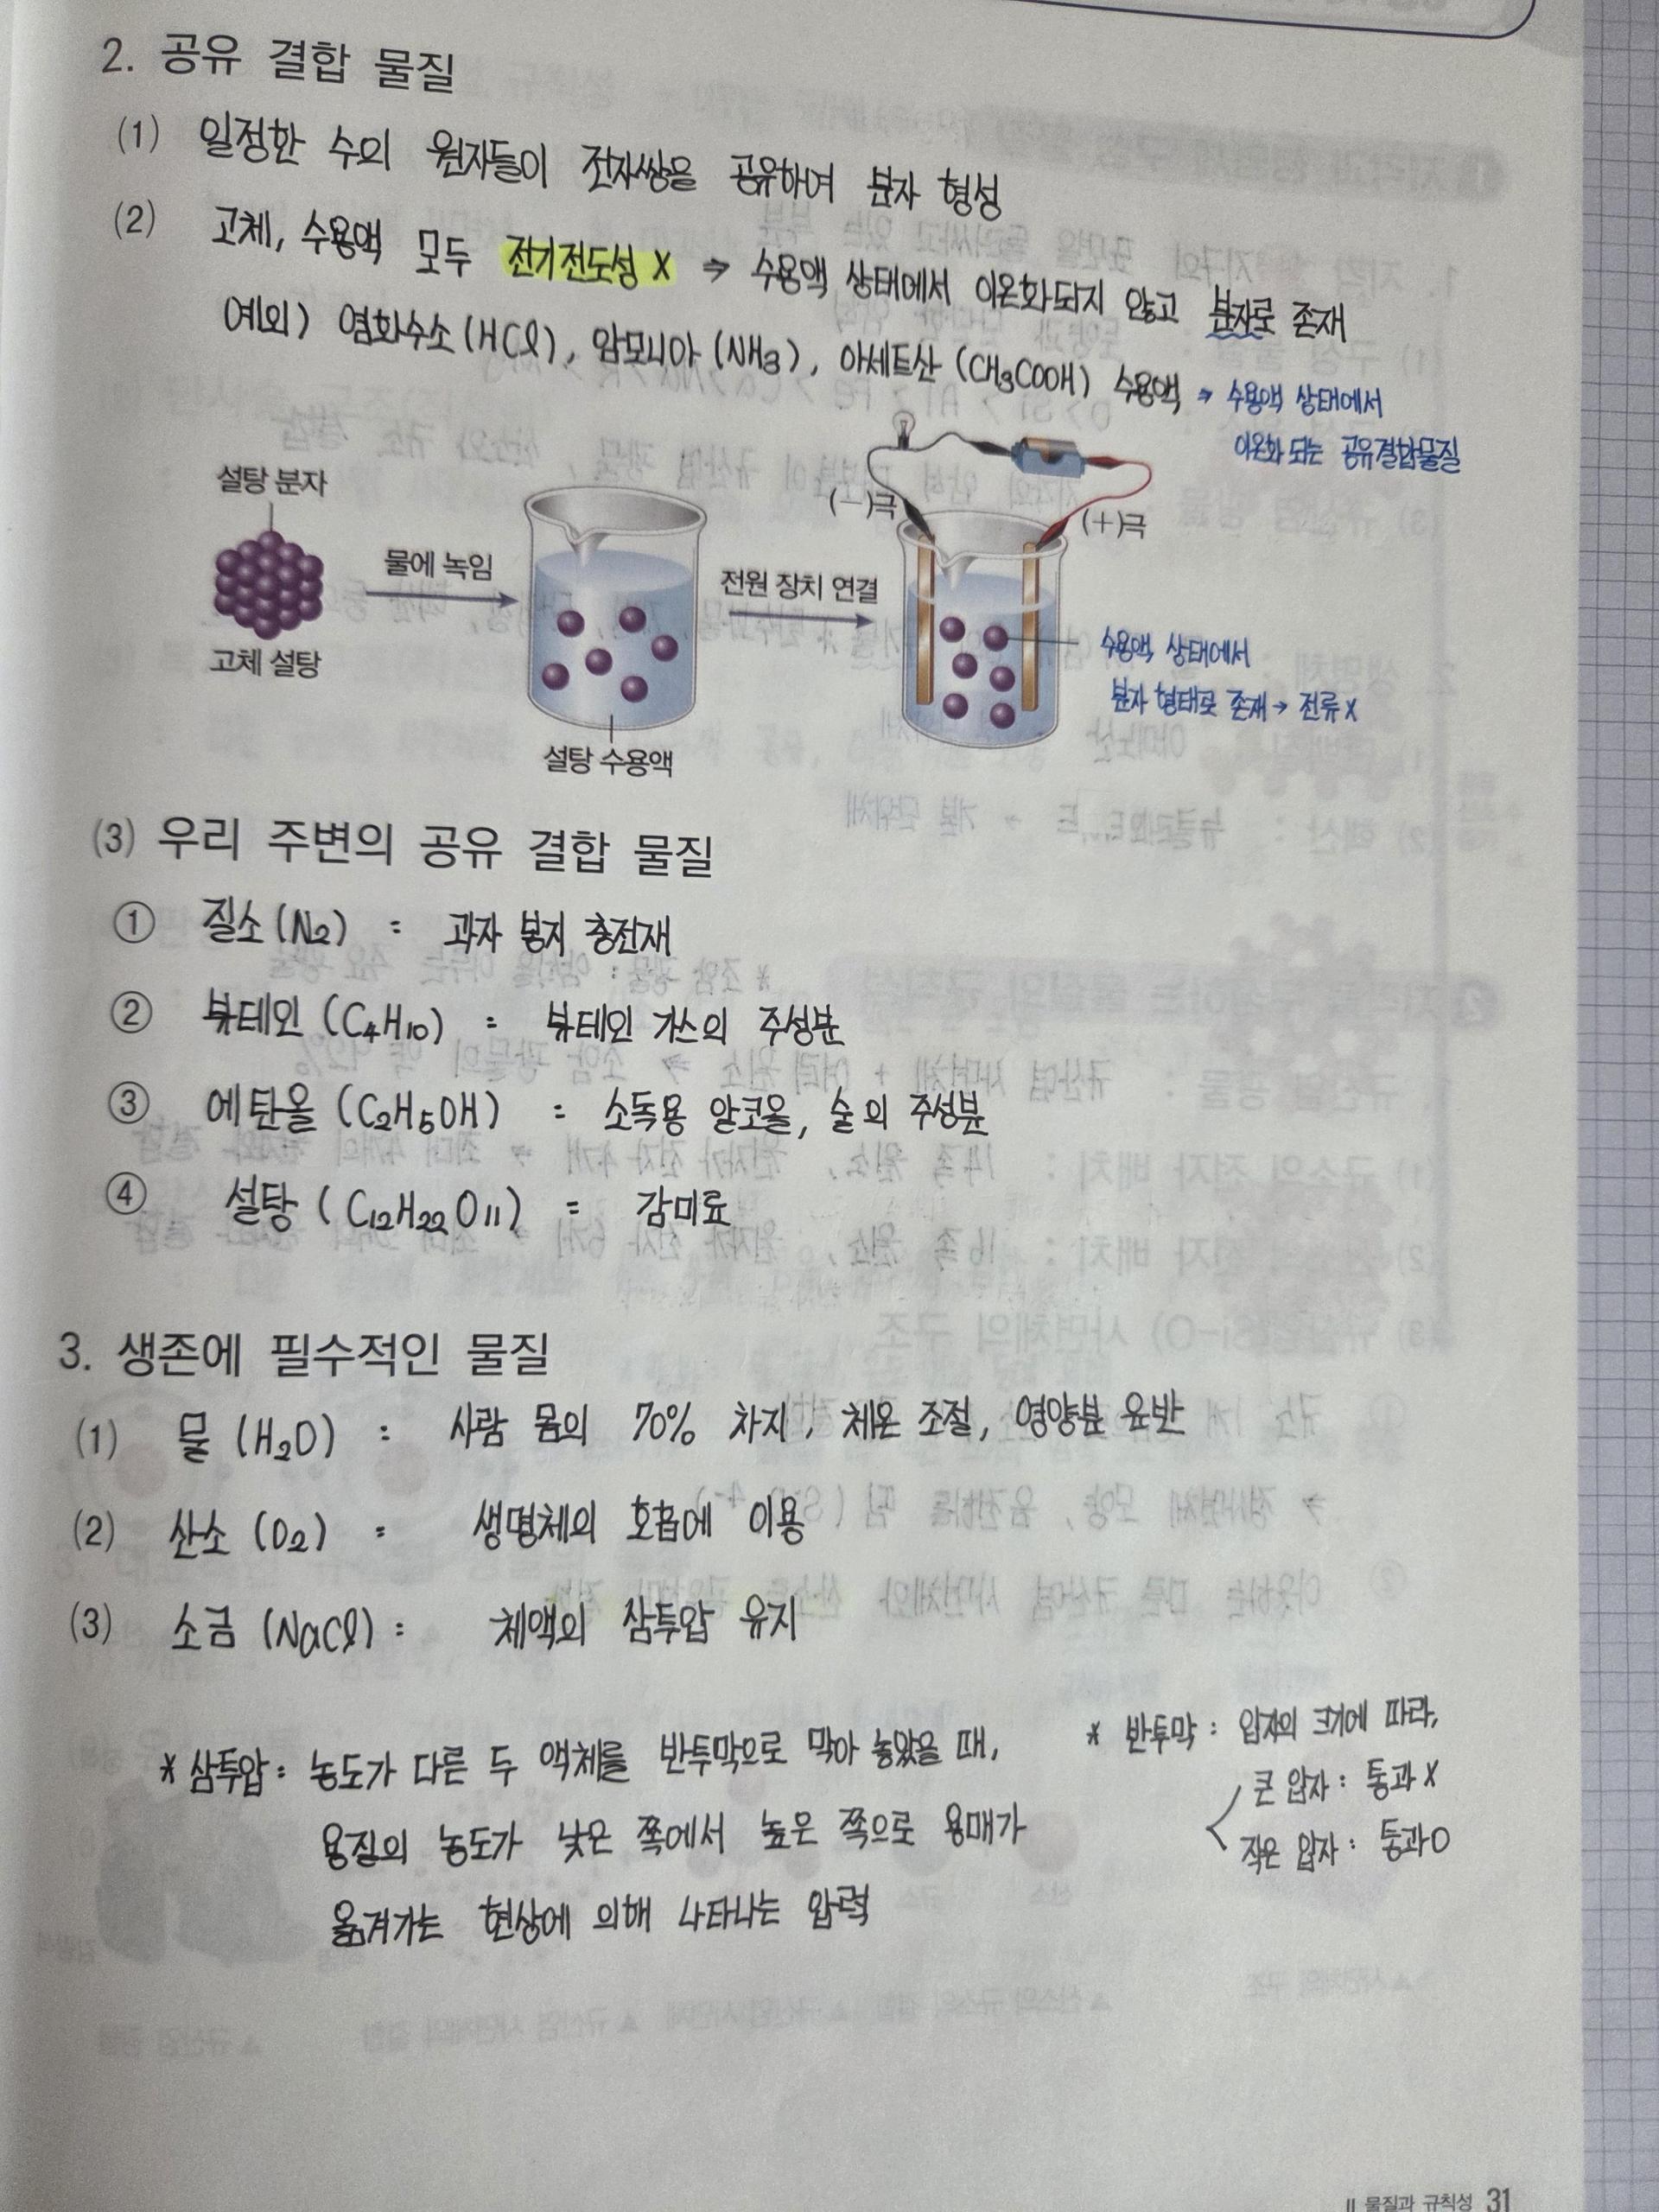 2. 공유 결합 물질
(1) 일정한 수의 원자들이 전자쌍을 공유하여 분자 형성
(2) 고체, 수용액 모두 전기전도성 X ⇒ 수용액 상태에서 이온화되지 않고 분자로 존재
예외) 염화수소(HCl), 암모니아(NH₃), 아세트산(CH₃COOH) 수용액 ⇒ 수용액 상태에서
이온화 되는 공유결합물질
설탕 분자
고체 설탕
물에 녹임
설탕 수용액
전원 장치 연결
(−)극
(+)극
수용액 상태에서
분자 형태로 존재 → 전류 X
(3) 우리 주변의 공유 결합 물질
① 질소(N₂) : 과자 봉지 충전재
② 뷰테인(C₄H₁₀) : 뷰테인 가스의 주성분
③ 에탄올(C₂H₅OH) : 소독용 알코올, 술의 주성분
④ 설탕(C₁₂H₂₂O₁₁) : 감미료
3. 생존에 필수적인 물질
(1) 물(H₂O) : 사람 몸의 70% 차지, 체온 조절, 영양분 운반
(2) 산소(O₂) : 생명체의 호흡에 이용
(3) 소금(NaCl) : 체액의 삼투압 유지
* 삼투압 : 농도가 다른 두 액체를 반투막으로 막아 놓았을 때,
용질의 농도가 낮은 쪽에서 높은 쪽으로 용매가
옮겨가는 현상에 의해 나타나는 압력
* 반투막 : 입자의 크기에 따라,
큰 입자 : 통과 X
작은 입자 : 통과 O
II 물질과 규칙성 31